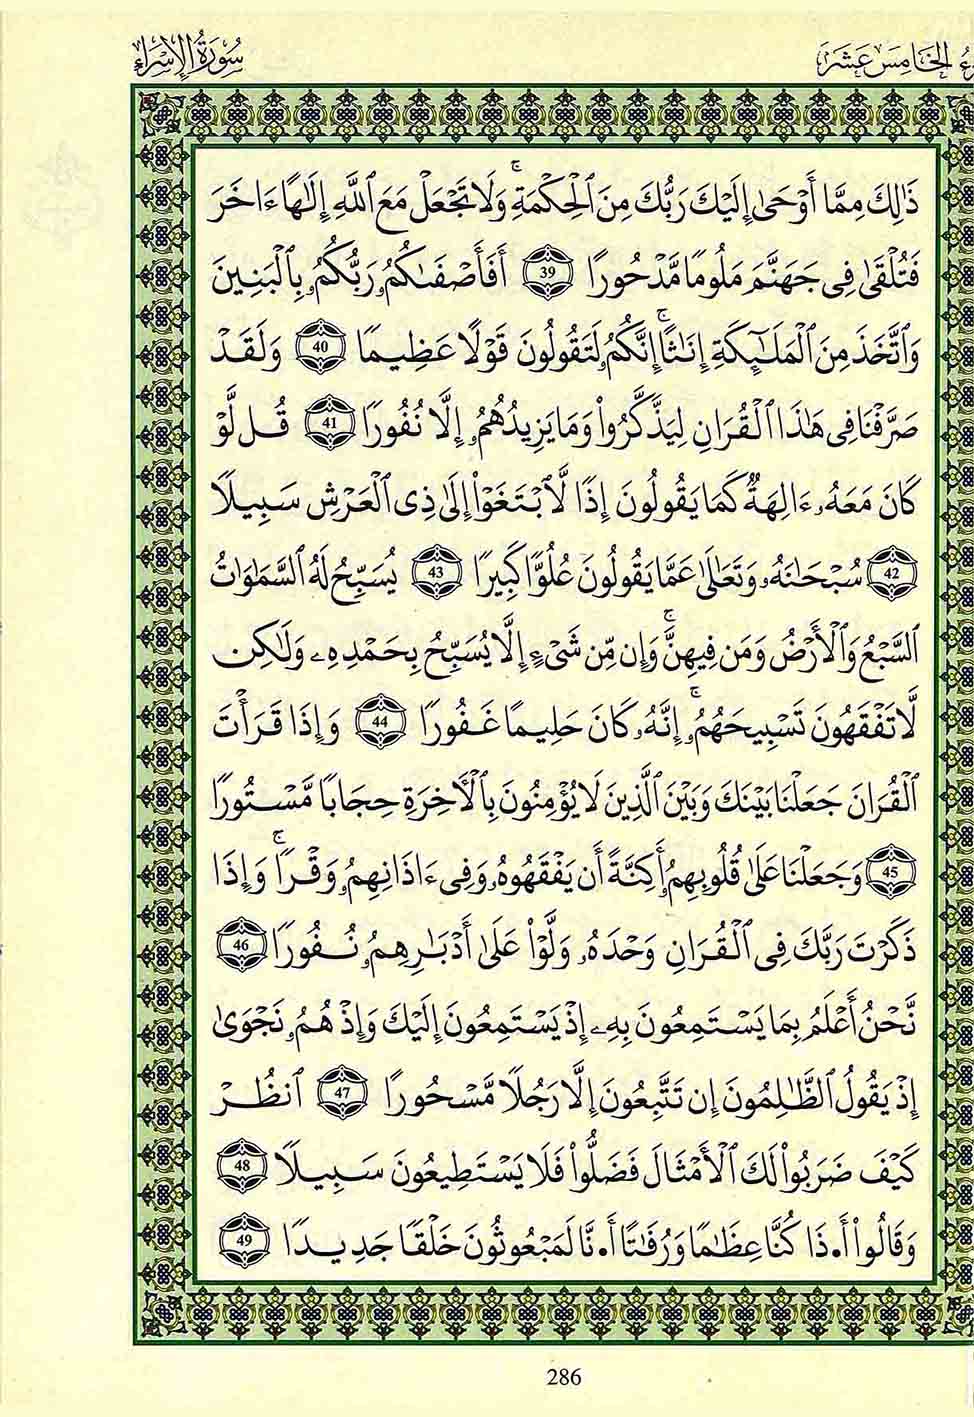 الخَامِسَ عَشَرَ سُورَةُ الإِسْرَاءِ
ذَٰلِكَ مِمَّا أَوْحَىٰ إِلَيْكَ رَبُّكَ مِنَ ٱلْحِكْمَةِۚ وَلَا تَجْعَلْ مَعَ ٱللَّهِ إِلَٰهًا ءَاخَرَ
فَتُلْقَىٰ فِى جَهَنَّمَ مَلُومًا مَّدْحُورًا 39 أَفَأَصْفَىٰكُمُۥ رَبُّكُمُۥ بِٱلْبَنِينَ
وَٱتَّخَذَ مِنَ ٱلْمَلَٰٓئِكَةِ إِنَٰثًاۚ إِنَّكُمُۥ لَتَقُولُونَ قَوْلًا عَظِيمًا 40 وَلَقَدْ
صَرَّفْنَا فِى هَٰذَا ٱلْقُرَانِ لِيَذَّكَّرُوا۟ وَمَا يَزِيدُهُمُۥ إِلَّا نُفُورًا 41 قُل لَّوْ
كَانَ مَعَهُۥ ءَالِهَةٌ كَمَا يَقُولُونَ إِذًا لَّٱبْتَغَوْا۟ إِلَىٰ ذِى ٱلْعَرْشِ سَبِيلًا
42 سُبْحَٰنَهُۥ وَتَعَٰلَىٰ عَمَّا يَقُولُونَ عُلُوًّا كَبِيرًا 43 يُسَبِّحُ لَهُ ٱلسَّمَٰوَٰتُ
ٱلسَّبْعُ وَٱلْأَرْضُ وَمَن فِيهِنَّۚ وَإِن مِّن شَىْءٍ إِلَّا يُسَبِّحُ بِحَمْدِهِۦ وَلَٰكِن
لَّا تَفْقَهُونَ تَسْبِيحَهُمُۥۚ إِنَّهُۥ كَانَ حَلِيمًا غَفُورًا 44 وَإِذَا قَرَأْتَ
ٱلْقُرَانَ جَعَلْنَا بَيْنَكَ وَبَيْنَ ٱلَّذِينَ لَا يُؤْمِنُونَ بِٱلْأَخِرَةِ حِجَابًا مَّسْتُورًا
45 وَجَعَلْنَا عَلَىٰ قُلُوبِهِمُۥ أَكِنَّةً أَن يَفْقَهُوهُۥ وَفِى ءَاذَانِهِمُۥ وَقْرًاۚ وَإِذَا
ذَكَرْتَ رَبَّكَ فِى ٱلْقُرَانِ وَحْدَهُۥ وَلَّوْا۟ عَلَىٰ أَدْبَٰرِهِمُۥ نُفُورًا 46
نَّحْنُ أَعْلَمُ بِمَا يَسْتَمِعُونَ بِهِۦ إِذْ يَسْتَمِعُونَ إِلَيْكَ وَإِذْ هُمُۥ نَجْوَىٰ
إِذْ يَقُولُ ٱلظَّٰلِمُونَ إِن تَتَّبِعُونَ إِلَّا رَجُلًا مَّسْحُورًا 47 ٱنظُرْ
كَيْفَ ضَرَبُوا۟ لَكَ ٱلْأَمْثَالَ فَضَلُّوا۟ فَلَا يَسْتَطِيعُونَ سَبِيلًا 48
وَقَالُوا۟ أَ.ذَا كُنَّا عِظَٰمًا وَرُفَٰتًا أَ.نَّا لَمَبْعُوثُونَ خَلْقًا جَدِيدًا 49
286